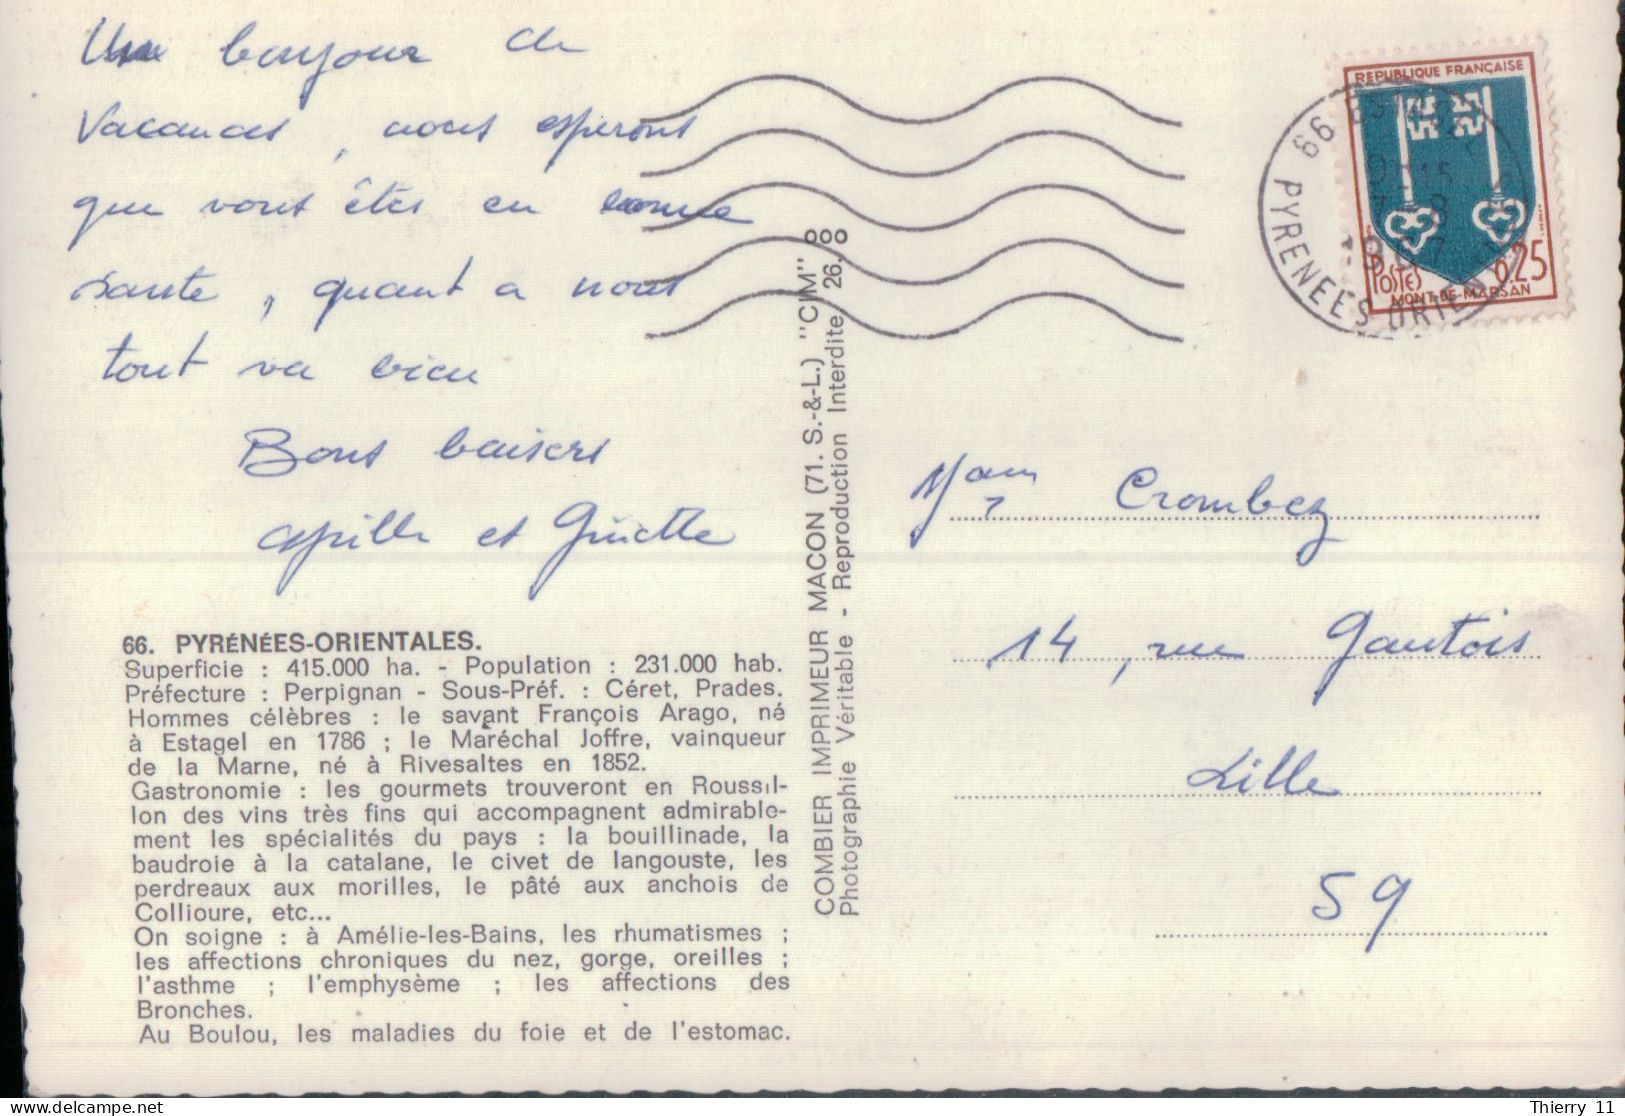 Un bonjour de
vacances, nous esperons
que vous êtes en bonne
sante, quant a nous
tout va bien
Bons baisers
et Ginette
66. PYRÉNÉES-ORIENTALES.
Superficie : 415.000 ha. - Population : 231.000 hab.
Préfecture : Perpignan - Sous-Préf. : Céret, Prades.
Hommes célèbres : le savant François Arago, né
à Estagel en 1786 ; le Maréchal Joffre, vainqueur
de la Marne, né à Rivesaltes en 1852.
Gastronomie : les gourmets trouveront en Roussil-
lon des vins très fins qui accompagnent admirable-
ment les spécialités du pays : la bouillinade, la
baudroie à la catalane, le civet de langouste, les
perdreaux aux morilles, le pâté aux anchois de
Collioure, etc...
On soigne : à Amélie-les-Bains, les rhumatismes ;
les affections chroniques du nez, gorge, oreilles ;
l'asthme ; l'emphysème ; les affections des
Bronches.
Au Boulou, les maladies du foie et de l'estomac.
COMBIER IMPRIMEUR MACON (71. S.-&-L.) "CIM" 8
Photographie Véritable - Reproduction Interdite 26. 8
REPUBLIQUE FRANÇAISE
POSTES
0,25
MONT-DE-MARSAN
66
PYRENEES ORIENTALES
Crombez
14, rue Gantois
Lille
59
Thierry 11